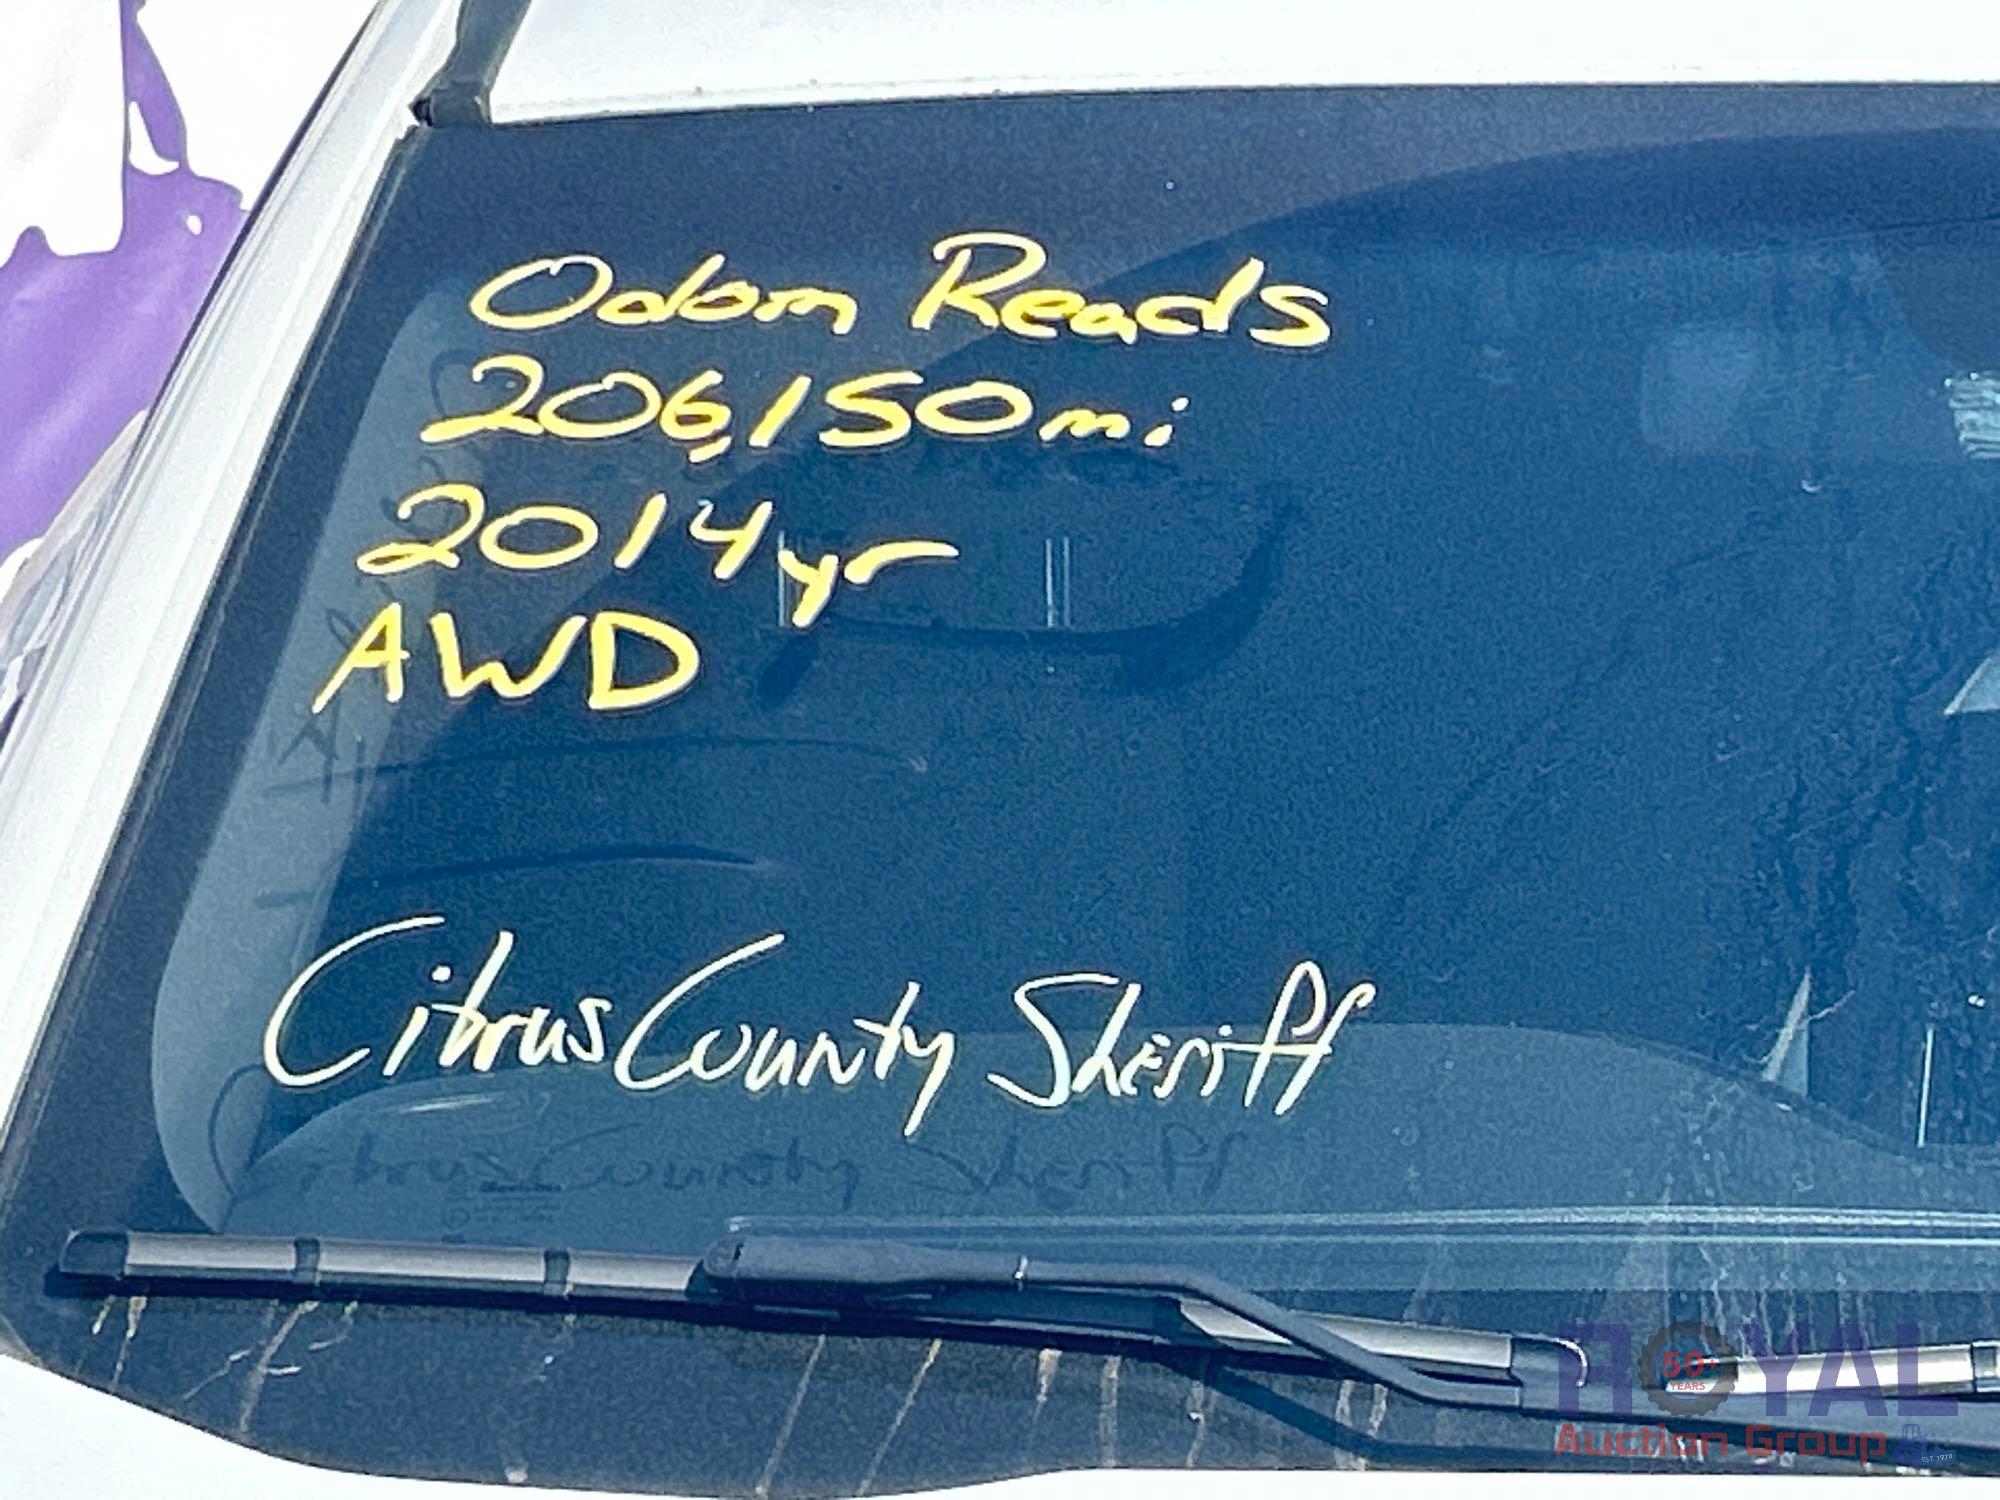 Odom Reads
206,150mi
2014yr
AWD
Citrus County Sheriff
ROYAL
50+
YEARS
Auction Group
EST. 1970